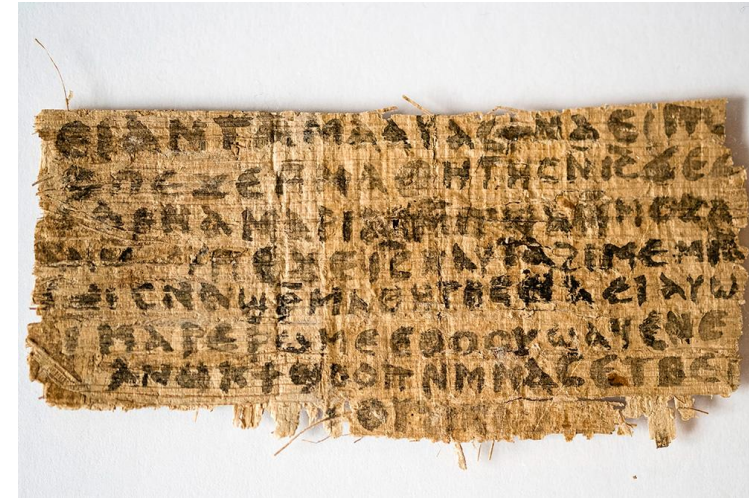 ⲉⲓ ⲁⲛ ⲧⲁⲙⲁⲁⲩ ⲁⲥϯ ⲛⲁⲉⲓ ⲡ
ⲡⲉϫⲉ ⲙⲙⲁⲑⲏⲧⲏⲥ ⲛⲓⲥ ϫⲉ ⲥ
ⲁⲣⲛⲁ ⲙⲁⲣⲓⲁⲙ
ⲡⲉϫⲉ ⲓⲥ ⲛⲁⲩ ⲧⲁϩⲓⲙⲉ ⲙⲛ
ⲥⲛⲁϣⲣⲙⲁⲑⲏⲧⲏⲥ ⲛⲁⲉⲓ ⲁⲩⲱ
ⲙⲁⲣⲉⲣⲱⲙⲉ ⲉⲑⲟⲟⲩ ϣⲁϥⲉ ⲛⲉ
ⲁⲛⲟⲕ ϯϣⲟⲟⲡ ⲛⲙⲙⲁⲥ ⲉⲧⲃⲉ